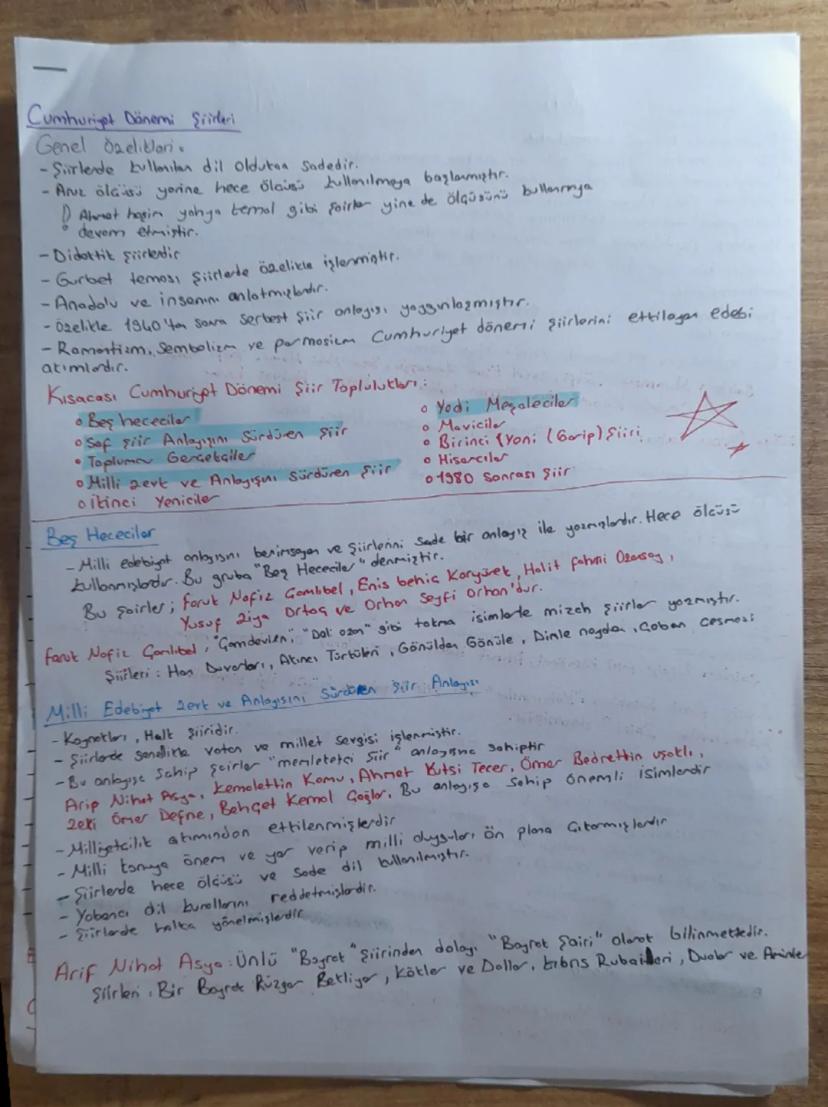 Cumhuriyet Dönemi Şiirleri
Genel Özelikleri:
- Şiirlerde kullanılan dil oldukça sadedir.
- Aruz ölçüsü yerine hece ölçüsü kullanılmaya başlanmıştır.
Ahmet haşim yahya kemal gibi şairler yine de ölçüsünü kullanmaya
devam etmiştir.
- Didaktik şiirlerdir
- Gurbet teması şiirlerde özelikle işlenmiştir.
- Anadolu ve insanını anlatmışlardır.
- Özelikle 1940'tan sonra serbest şiir anlayışı yaygınlaşmıştır.
- Romantizm, Sembolizm ve parnasizm Cumhuriyet dönemi şiirlerini etkileyen edebi
akımlardır.
Kısacası Cumhuriyet Dönemi Şiir Toplulukları:
• Beş hececiler
• Saf şiir Anlayışını Sürdüren Şiir
• Toplumcu Gerçekçiler
• Milli zevk ve Anlayışını Sürdüren Şiir
• İkinci Yeniciler
• Yedi Meşaleciler
• Maviciler
• Birinci Yeni (Garip) Şiiri
• Hisarcılar
• 1980 Sonrası Şiir
Beş Hececiler
- Milli edebiyat anlayışını benimseyen ve şiirlerini sade bir anlayış ile yazmışlardır. Hece ölçüsü
kullanmışlardır. Bu gruba "Beş Hececiler" denmiştir.
Bu şairler; Faruk Nafiz Çamlıbel, Enis behiç Koryürek, Halit fahri Ozansoy,
Yusuf Ziya Ortaç ve Orhan Seyfi Orhon'dur.
Faruk Nafiz Çamlıbel, "Çamdeviren", "Deli ozan" gibi takma isimlerle mizah şiirler yazmıştır.
Şiirleri: Han Duvarları, Akıncı Türküleri, Gönülden Gönüle, Dinle neyden, Çoban çeşmesi
Milli Edebiyat Zevk ve Anlayışını Sürdüren Şiir Anlayışı
- Kaynakları, Halk şiiridir.
- Şiirlerde genellikle vatan ve millet sevgisi işlenmiştir.
- Bu anlayışa sahip şairler "memleketçi Şiir" anlayışına sahiptir
Arip Nihat Asya, Kemalettin Kamu, Ahmet Kutsi Tecer, Ömer Bedrettin uşaklı,
Zeki Ömer Defne, Behçet Kemal Çağlar, Bu anlayışa sahip önemli isimlerdir
- Milliyetçilik akımından etkilenmişlerdir
- Milli konuya önem ve yer verip milli duyguları ön plana çıkarmışlardır
- Şiirlerde hece ölçüsü ve sade dil kullanılmıştır.
- Yabancı dil kurallarını reddetmişlerdir.
- Şiirlerde halka yönelmişlerdir
Arif Nihat Asya: Ünlü "Bayrak" şiirinden dolayı "Bayrak Şairi" olarak bilinmektedir.
Şiirleri: Bir Bayrak Rüzgar Bekliyor, Kökler ve Dallar, Kıbrıs Rubaileri, Dualar ve Aminler